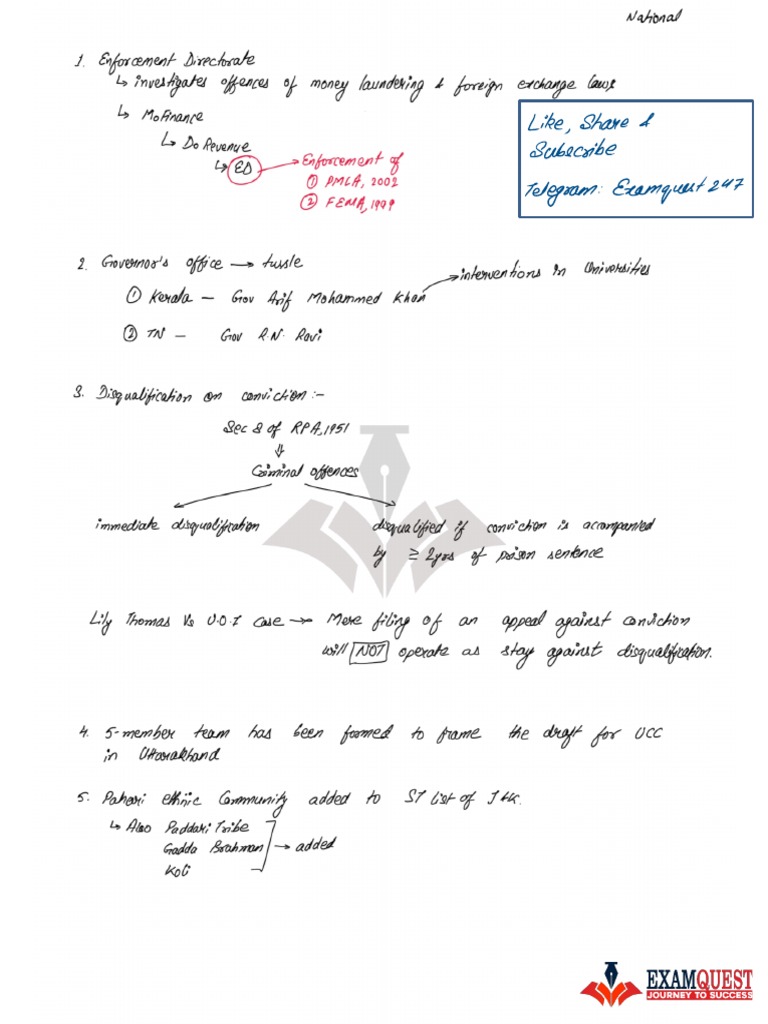 National
1. Enforcement Directorate
↳ investigates offences of money laundering & foreign exchange laws
↳ MoFinance
↳ Do Revenue
↳ ED → Enforcement of
① PMLA, 2002
② FEMA, 1999
Like, Share &
Subscribe
Telegram: Examquest 247
2. Governor's office → tussle
① Kerala – Gov Arif Mohammed Khan → interventions in Universities
② TN – Gov R.N. Ravi
3. Disqualification on conviction :-
Sec 8 of RPA, 1951
⇓
Criminal offences
immediate disqualification
disqualified if conviction is accompanied
by ≥ 2yrs of prison sentence
Lily Thomas Vs U.O.I case → Mere filing of an appeal against conviction
will NOT operate as stay against disqualification.
4. 5-member team has been formed to frame the draft for UCC
in Uttarakhand
5. Pahari ethnic Community added to ST list of J&K.
↳ Also Paddari Tribe
Gadda Brahman → added
Koli
EXAMQUEST
JOURNEY TO SUCCESS